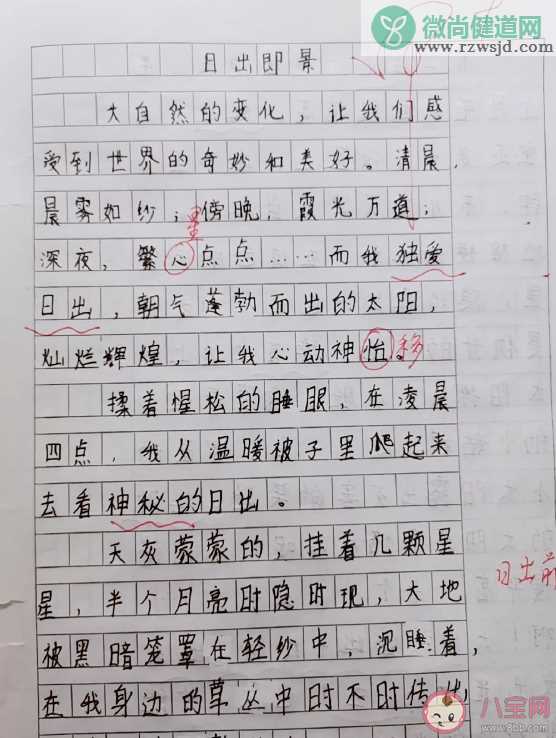 微尚健道网
www.rzwsjd.com
日出即景
大自然的变化，让我们感
受到世界的奇妙和美好。清晨，
晨雾如纱；傍晚，霞光万道；
星
深夜，繁心点点……而我独爱
日出，朝气蓬勃而出的太阳，
灿烂辉煌，让我心动神怡。移
揉着惺松的睡眼，在凌晨
四点，我从温暖被子里爬起来
去看神秘的日出。
天灰蒙蒙的，挂着几颗星
日出前
星，半个月亮时隐时现，大地
被黑暗笼罩在轻纱中，沉睡着，
在我身边的草丛中时不时传出
八宝网
www.8bb.com